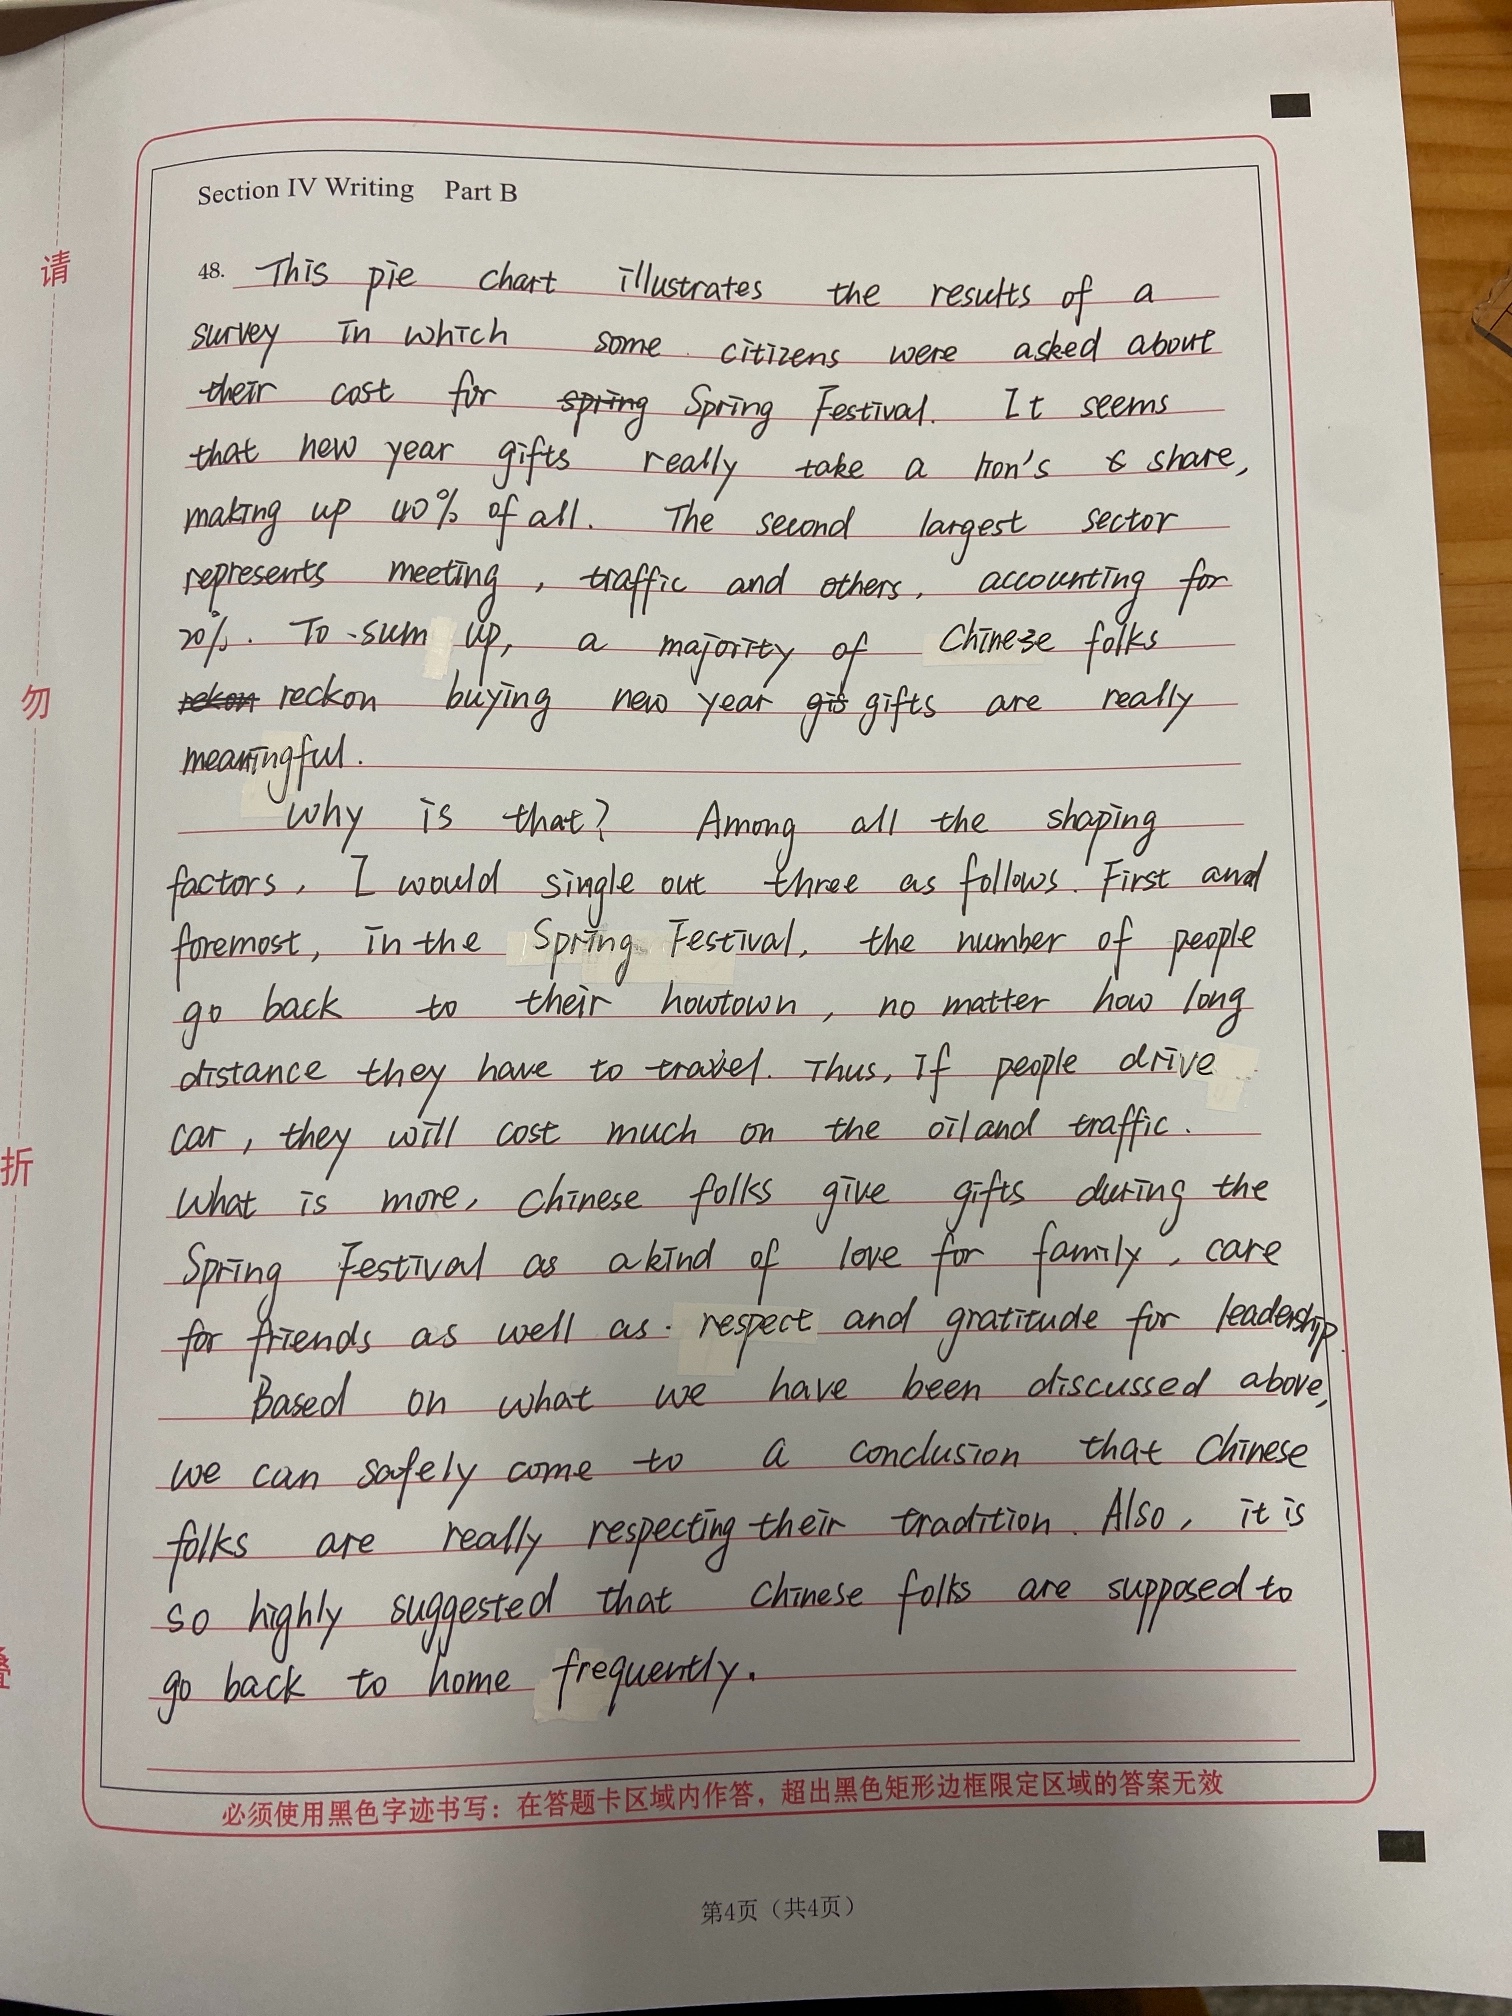 请
勿
折
叠
Section IV Writing Part B
48. This pie chart illustrates the results of a
survey in which some citizens were asked about
their cost for spring Spring Festival. It seems
that new year gifts really take a lion's share,
making up 40% of all. The second largest sector
represents meeting, traffic and others, accounting for
20%. To sum up, a majority of Chinese folks
rekon reckon buying new year gis gifts are really
meaningful.
Why is that? Among all the shaping
factors, I would single out three as follows. First and
foremost, in the Spring Festival, the number of people
go back to their howtown, no matter how long
distance they have to travel. Thus, if people drive
car, they will cost much on the oil and traffic.
What is more, Chinese folks give gifts during the
Spring Festival as a kind of love for family, care
for friends as well as respect and gratitude for leadership.
Based on what we have been discussed above,
we can safely come to a conclusion that Chinese
folks are really respecting their tradition. Also, it is
so highly suggested that Chinese folks are supposed to
go back to home frequently.
必须使用黑色字迹书写：在答题卡区域内作答，超出黑色矩形边框限定区域的答案无效
第4页（共4页）